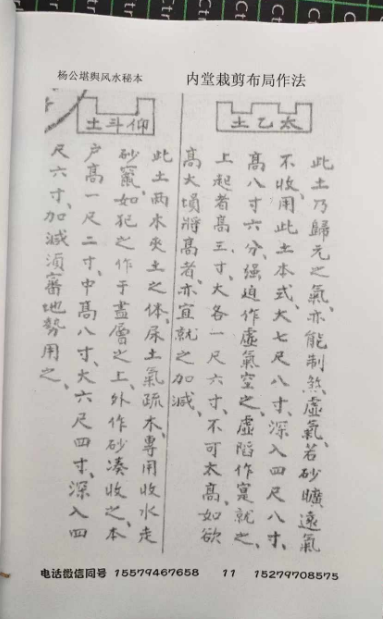 杨公堪舆风水秘本
内堂裁剪布局作法
土乙太
此土乃歸元之氣、亦能制煞虛氣、若砂曠遠氣
不收、用此土本式、大七尺八寸、深入四尺八寸、
高八寸六分、强迫作虛氣空之、虛陷作寔就之、
上起者高三寸、大各一尺六寸、不可太高、如欲
高大填將高者、亦宜就之加減、
土斗仰
此土兩木夾土之体、尿土氣疏木、專用收水走
砂竄、如犯之作于盡層之上、外作砂湊收之、本
户高一尺二寸、中高八寸、大六尺四寸、深入四
尺六寸、加減須審地勢用之、
电话微信同号 15579467658 11 15279708575